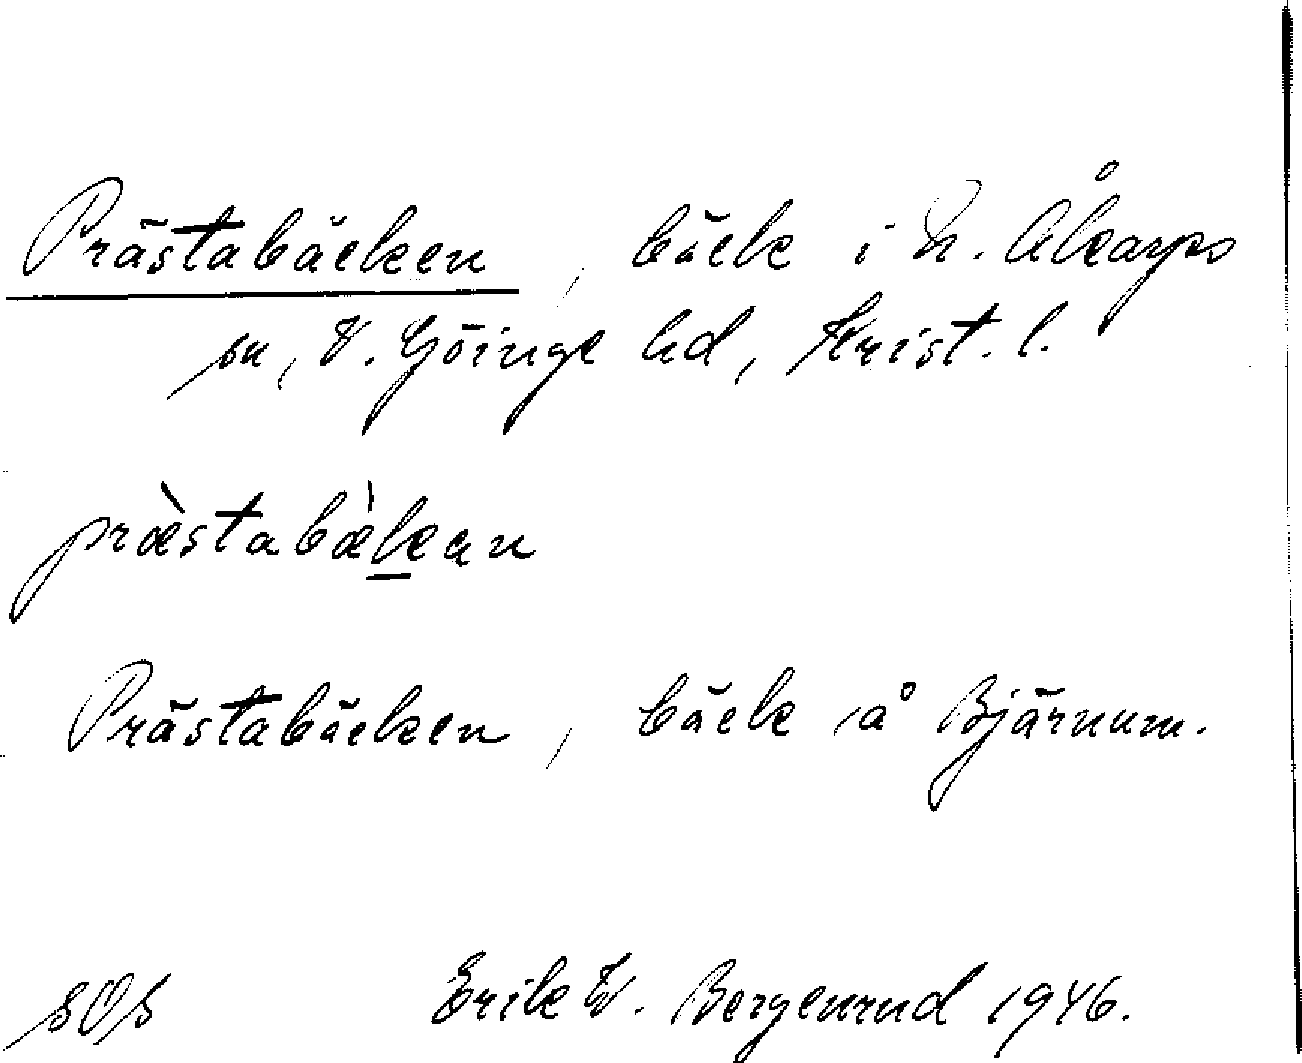 Prästabäcken, bäck i N. Åkarps
sn, V. Göinge hd, Krist. l.
præ̀stabæ̀kan
Prästabäcken, bäck å Bjärnum.
SOS Erik W. Bergenrud 1946.